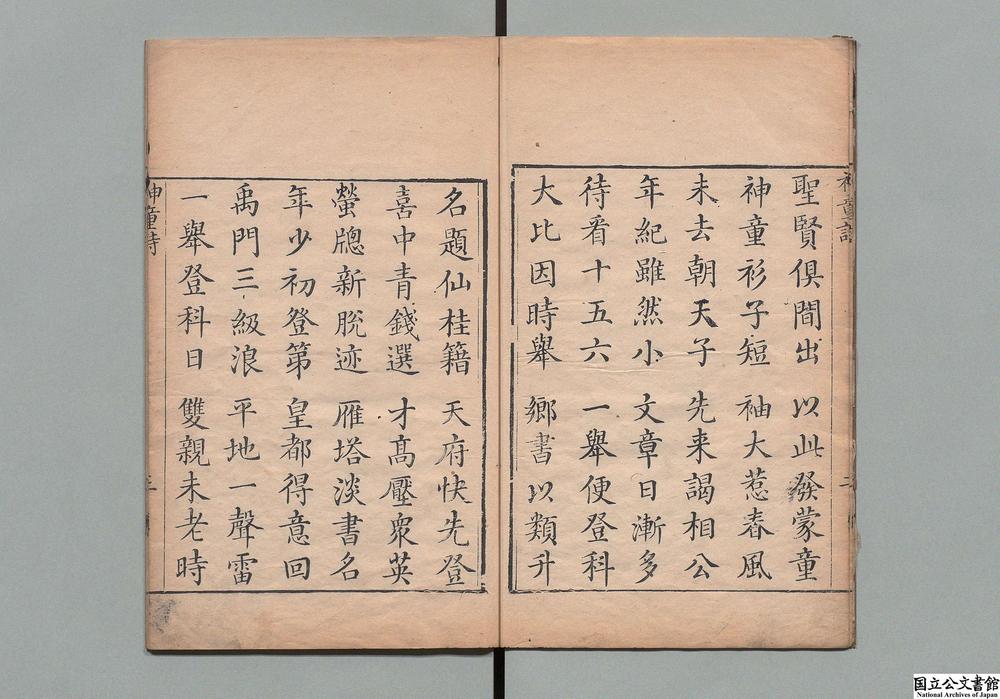 神童詩
聖賢俱間出 以此發蒙童
神童衫子短 袖大惹春風
未去朝天子 先来謁相公
年紀雖然小 文章日漸多
待看十五六 一舉便登科
大比因時舉 鄉書以類升
名題仙桂籍 天府快先登
喜中青錢選 才髙壓衆英
螢牕新脫迹 雁塔淡書名
年少初登第 皇都得意回
禹門三級浪 平地一聲雷
一舉登科日 雙親未老時
神童詩
国立公文書館
National Archives of Japan